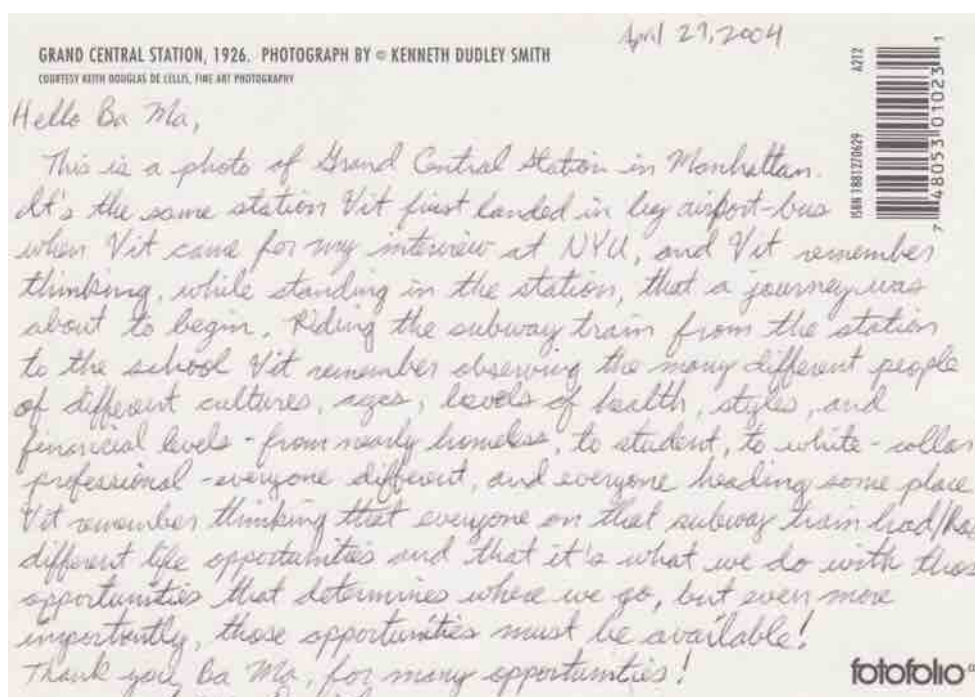 April 29, 2004
GRAND CENTRAL STATION, 1926. PHOTOGRAPH BY © KENNETH DUDLEY SMITH
COURTESY KEITH DOUGLAS DE LELLIS, FINE ART PHOTOGRAPHY
A212
ISBN 1881270629
7 48053 01023 1
Hello Ba Ma,
This is a photo of Grand Central Station in Manhattan.
It's the same station Vit first landed in by airport-bus
when Vit came for my interview at NYU, and Vit remember
thinking, while standing in the station, that a journey was
about to begin. Riding the subway train from the station
to the school Vit remember observing the many different people
of different cultures, ages, levels of health, styles, and
financial levels - from nearly homeless, to student, to white-collar
professional - everyone different, and everyone heading some place
Vit remember thinking that everyone on that subway train had/ha
different life opportunities and that it's what we do with thos
opportunities that determines where we go, but even more
importantly, those opportunities must be available!
Thank you, Ba Ma, for many opportunities!
fotofolio